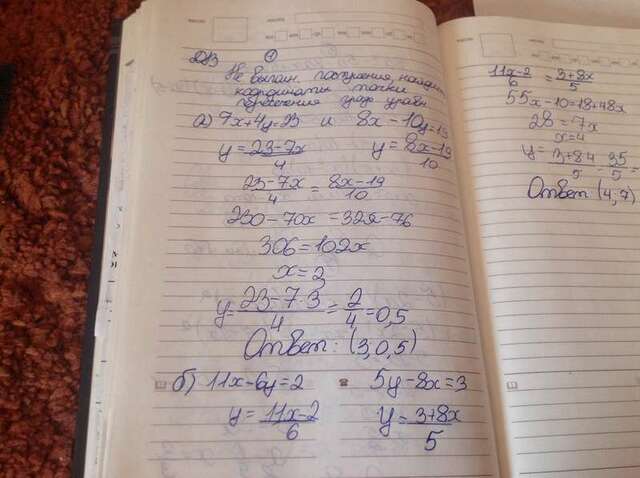 ДЗ
①
Не выполн. построения, найдите
координаты точки
пересечения граф. уравн.
а) 7x+4y=23 и 8x-10y=19
y=23-7x/4 y=8x-19/10
23-7x/4=8x-19/10
230-70x=32x-76
306=102x
x=3
y=23-7·3/4=2/4=0,5
Ответ: (3,0,5)
б) 11x-6y=2 5y-8x=3
y=11x-2/6 y=3+8x/5
11x-2/6=3+8x/5
55x-10=18+48x
28=7x
x=4
y=3+8·4/5=35/5=
Ответ: (4,7)